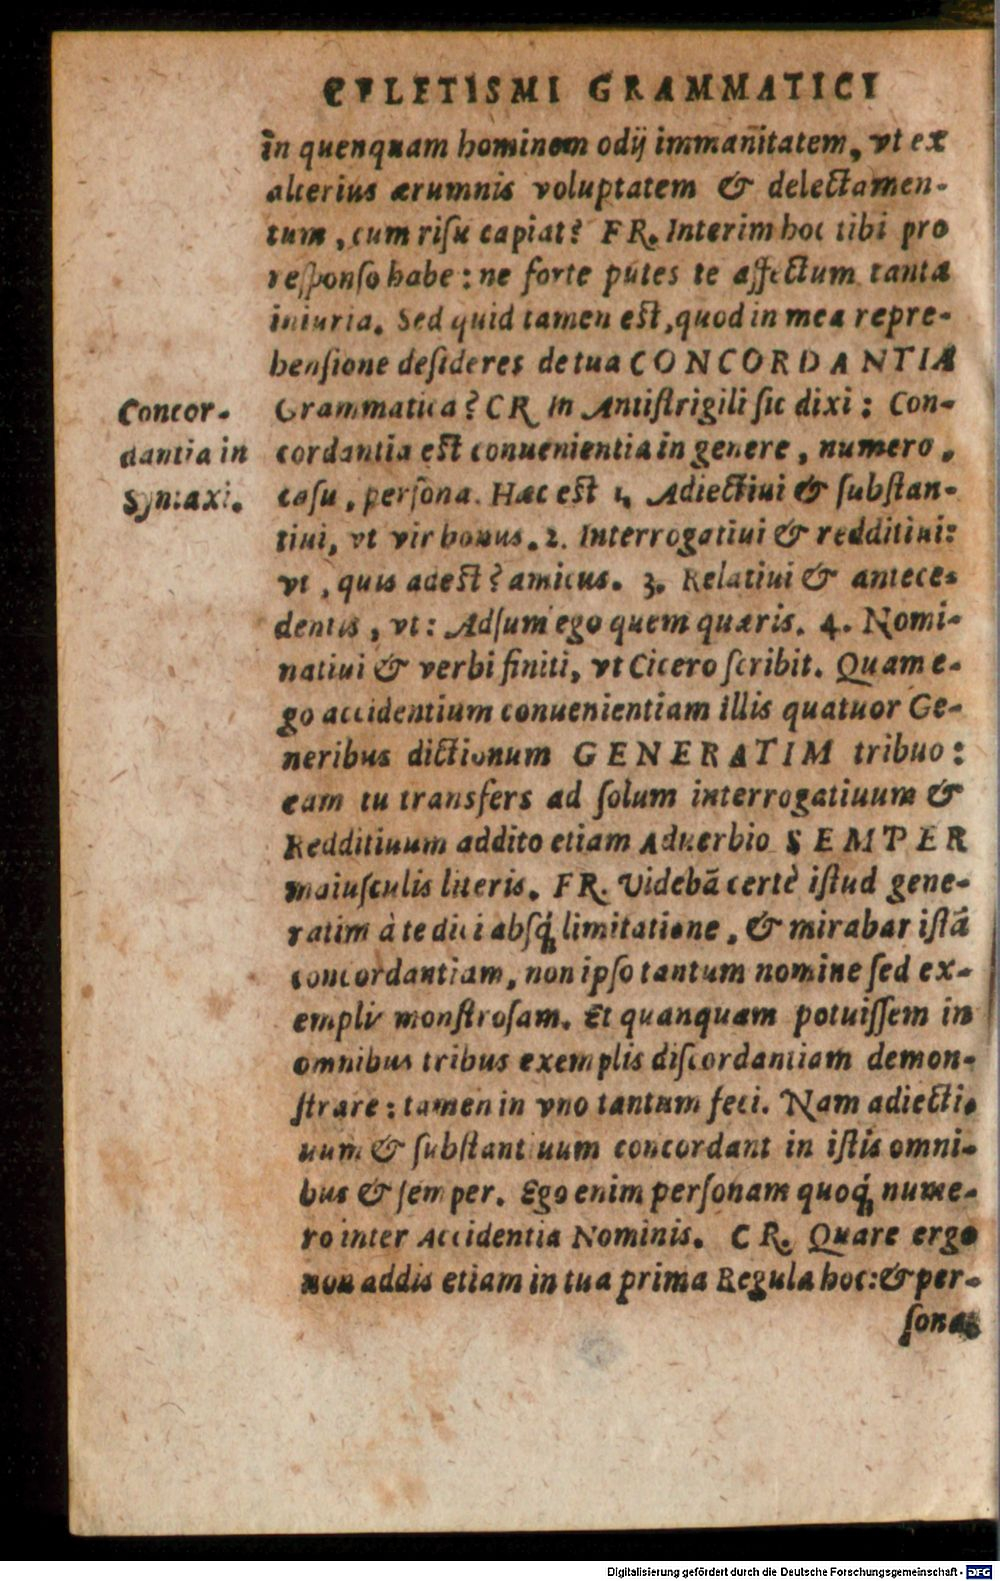 CELETISMI GRAMMATICI
in quenquam hominem odij immanitatem, vt ex
alterius ærumnis voluptatem & delectamen-
tum, cum risu capiat? FR. Interim hoc tibi pro
responso habe: ne forte putes te affectum tanta
iniuria. Sed quid tamen est, quod in mea repre-
hensione desideres de tua CONCORDANTIA
Concor-
dantia in
Syntaxi.
Grammatica? CR. In Antistrigili sic dixi: Con-
cordantia est conuenientia in genere, numero,
casu, persona. Hæc est 1. Adiectiui & substan-
tiui, vt vir bonus. 2. Interrogatiui & redditiui:
vt, quis adest? amicus. 3. Relatiui & antece-
dentis, vt: Adsum ego quem quæris. 4. Nomi-
natiui & verbi finiti, vt Cicero scribit. Quam e-
go accidentium conuenientiam illis quatuor Ge-
neribus dictionum GENERATIM tribuo:
eam tu transfers ad solum interrogatiuum &
Redditiuum addito etiam Aduerbio SEMPER
maiusculis literis. FR. Videbā certè istud gene-
ratim à te dici absq́ limitatione, & mirabar istā
concordantiam, non ipso tantum nomine sed ex-
emplis monstrosam. Et quanquam potuissem in
omnibus tribus exemplis discordantiam demon-
strare: tamen in vno tantum feci. Nam adiecti-
uum & substantiuum concordant in istis omni-
bus & semper. Ego enim personam quoq́ nume-
ro inter Accidentia Nominis. CR. Quare ergo
non addis etiam in tua prima Regula hoc: & per-
sona
Digitalisierung gefördert durch die Deutsche Forschungsgemeinschaft - DFG